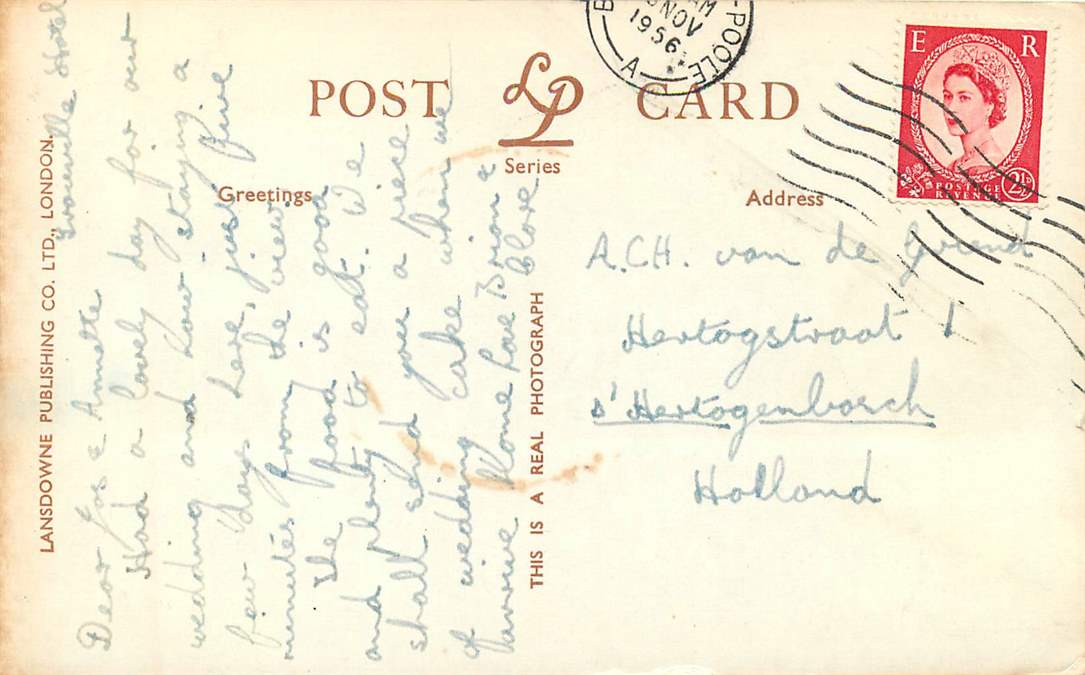 POST CARD
LP
Series
Greetings
Address
LANSDOWNE PUBLISHING CO. LTD., LONDON.
THIS IS A REAL PHOTOGRAPH
-POOLE
AM
NOV
1956
A
E R
POSTAGE
REVENUE
2½D
Hotel
Dear Jos & Annette
Had a lovely day for our
wedding and now staying a
few days here, just five
minutes from the view.
The food is good
and plenty to eat. We
shall send you a piece
of wedding cake when we
arrive Home Love Brian &
Clare
A.C.H. van de Griend
Hertogstraat 1
s'Hertogenbosch
Holland